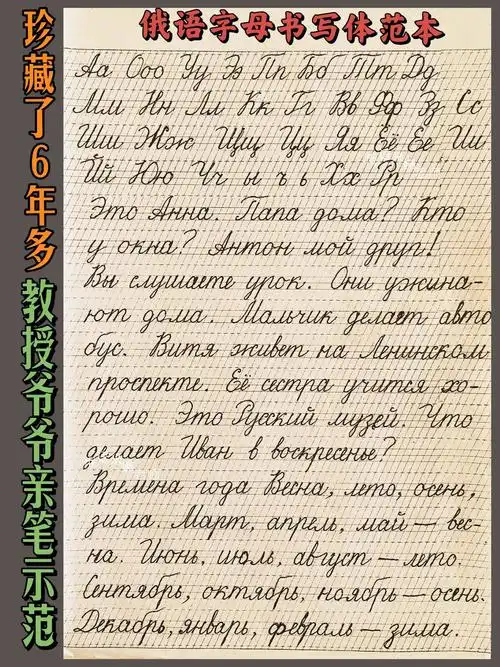 俄语字母书写体范本
珍藏了6年多
教授爷爷亲笔示范
Аа Ооо Уу Ээ Пп Бб Тт Дд
Мм Нн Лл Кк Гг Вв Фф Зз Сс
Шш Жж Щщ Цц Яя Её Ее Ии
Йй Юю Чч ы ъ ь Хх Рр
Это Анна. Папа дома? Кто
у окна? Антон мой друг!
Вы слушаете урок. Они ужина-
ют дома. Мальчик делает авто
бус. Витя живет на Ленинском
проспекте. Её сестра учится хо-
рошо. Это Русский музей. Что
делает Иван в воскресенье?
Времена года Весна, лето, осень,
зима. Март, апрель, май — вес-
на. Июнь, июль, август — лето.
Сентябрь, октябрь, ноябрь — осень.
Декабрь, январь, февраль — зима.